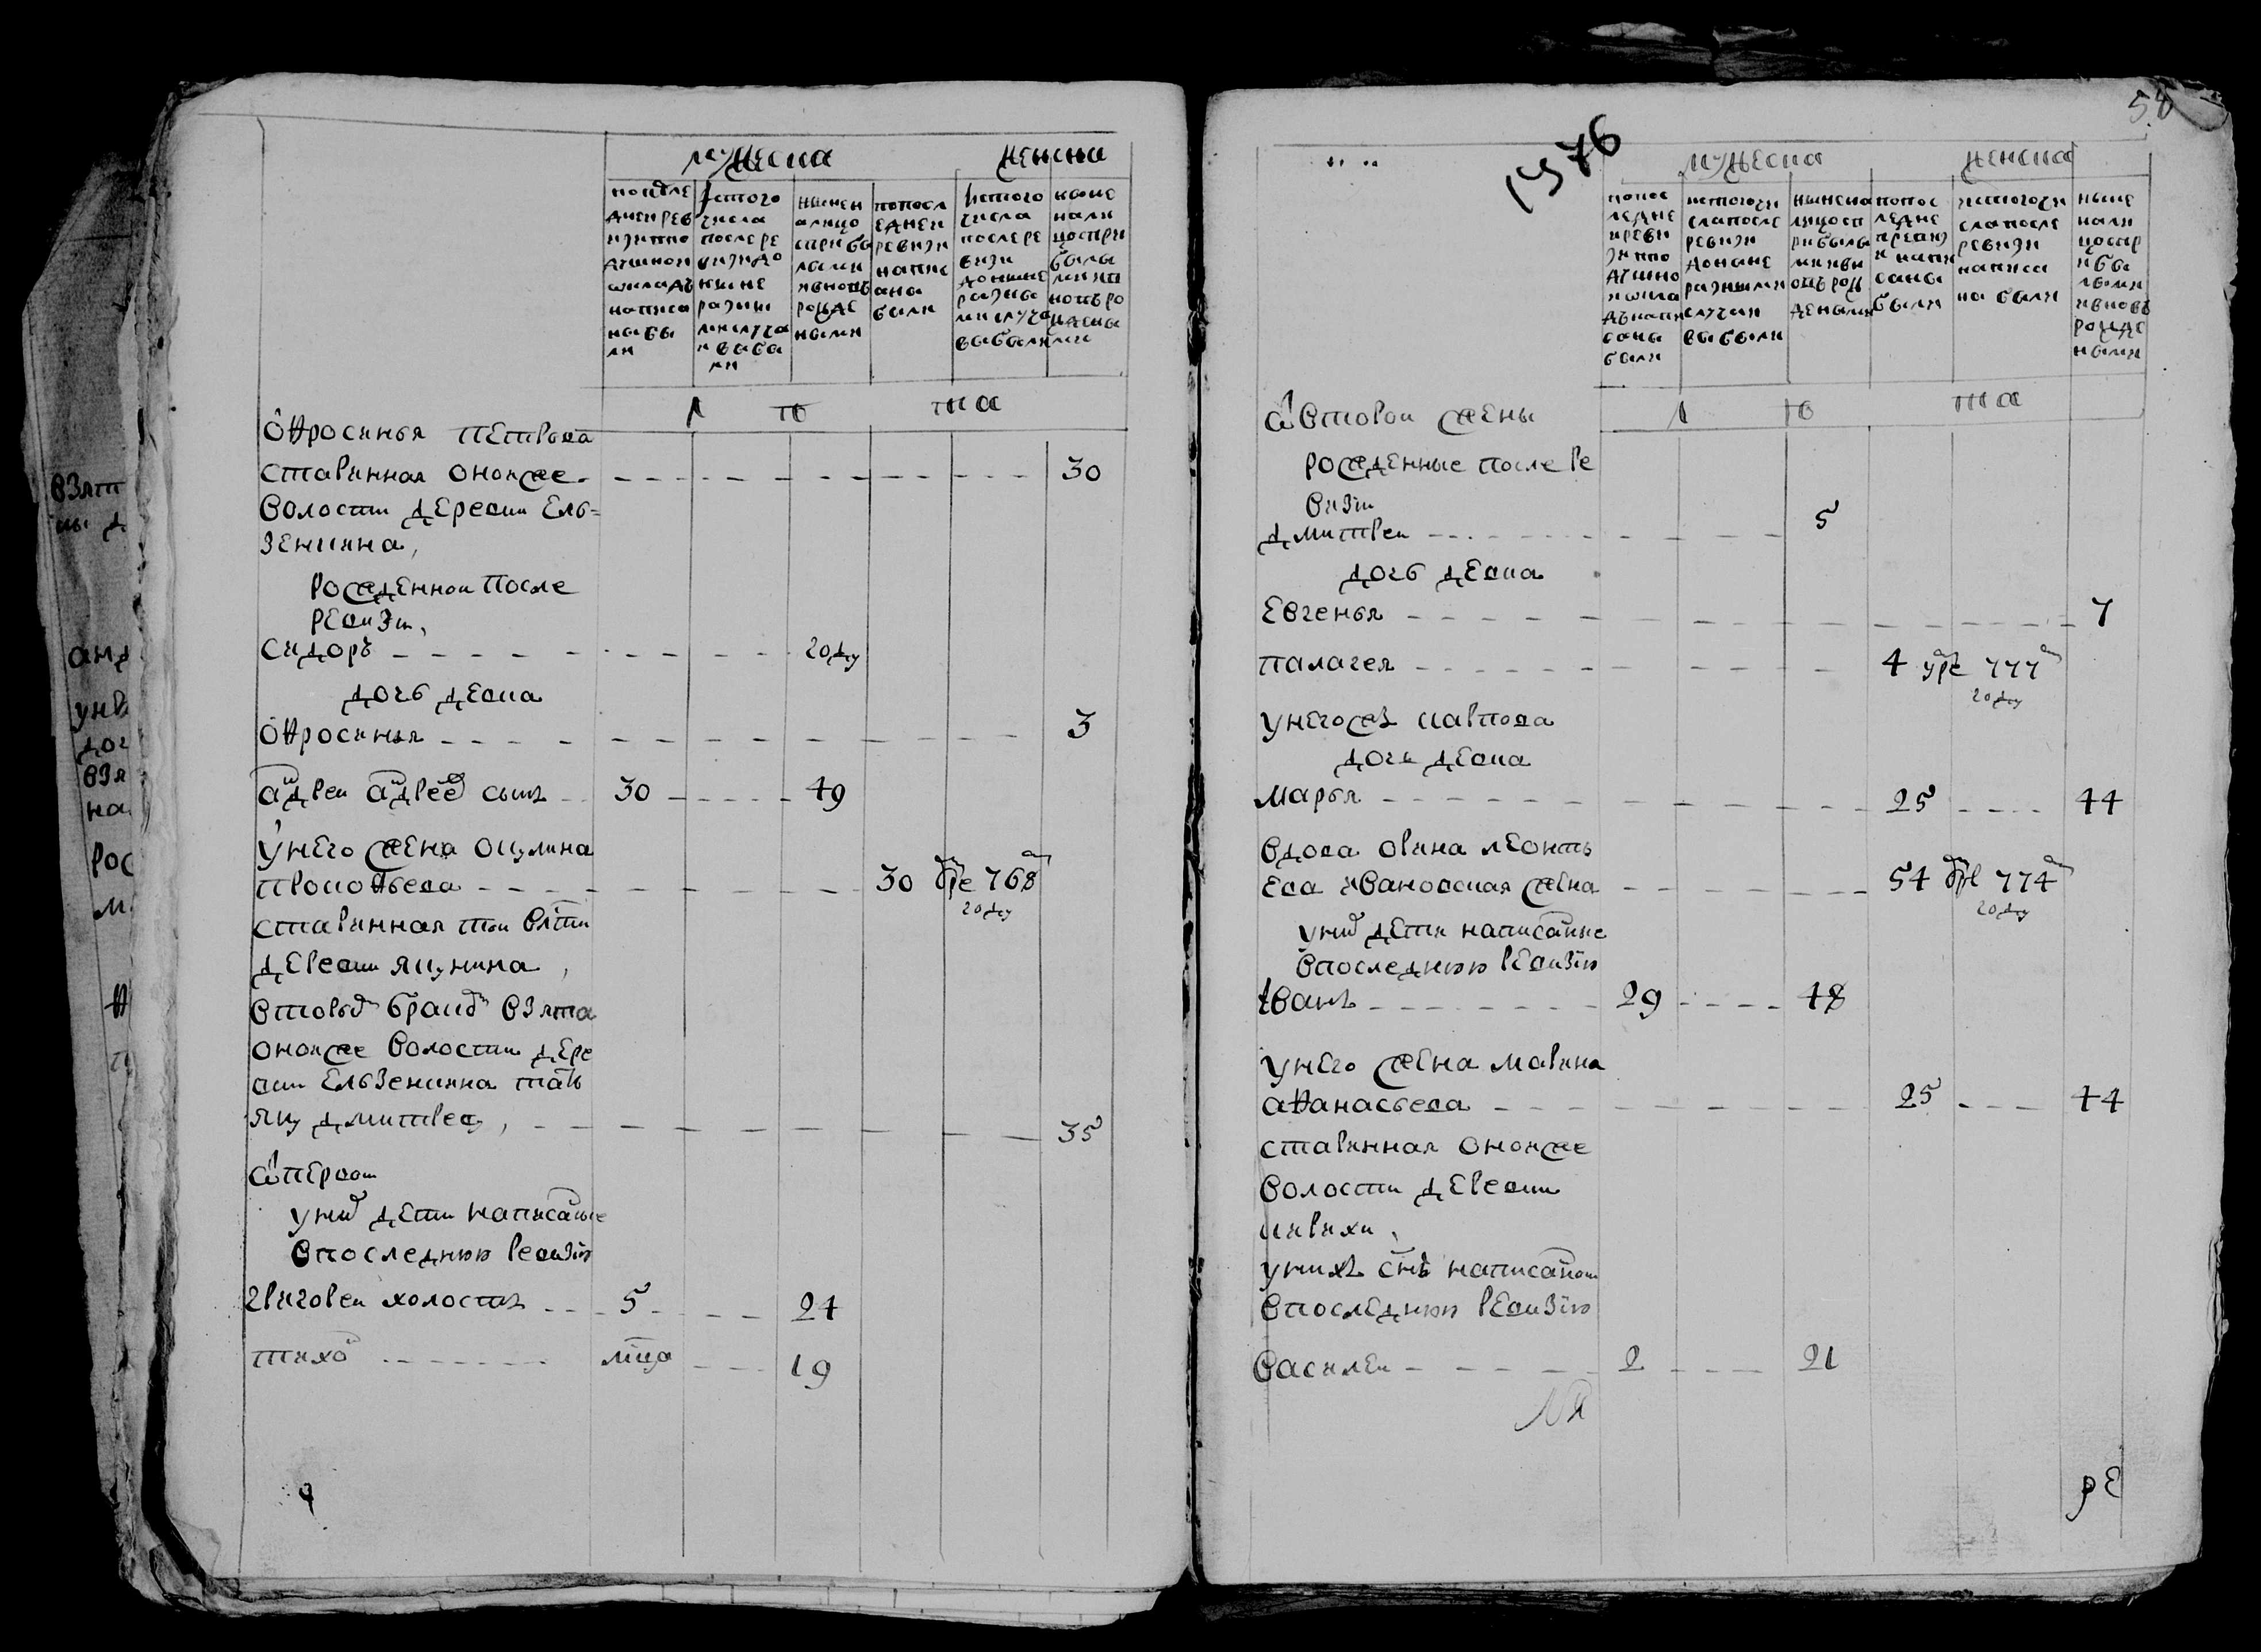 мужеска
женска
после
дней рев
изи по
душной
склад
написа
ны бы
ли
ис того
числа
после ре
визи до
ныне
разны
ми случа
и выбы
ли
ныне н
а лицо
с прибы
лыми
и вновь
рожде
ными
по посл
едней
ревизи
напис
аны
были
ис того
числа
после ре
визи
до ныне
разны
ми случа
выбыли
ныне
на ли
цо с при
былы
ми и в
новь ро
ждены
ми
л то та
офросинья петрова
стариннай оной же
волости деревни ель-
зенкина,
рожденной после
ревизи,
сидоръ году
дочь девка
офросинья 3
андреи андреевъ сынъ 30 49
у него жена окулина
прокофьева 30 умре 768
году
стариннай той волсти
деревни якунина,
вторым браком взята
оной же волости дере
вни ельзенкина тать
яну дмитреву, 35
от первои
у них дети написаные
в последнюю ревизию
григореи холостъ 5 24
тихон мца 19
30
1576
58
мужеска
женска
по пос
ледне
и реви
зи по
душно
ис того чи
сла после
ревизи
до ныне
разными
случаи
выбыли
ныне на
лицо с п
рибылы
ми и вн
овь рож
деными
по пос
ледне
и ревиз
и напи
саны
были
ис того чи
сла после
ревизи
написа
ны были
ныне
на ли
цо с пр
ибы
лыми
и вновь
рожде
ными
л то та
от второи жены
рожденные после ре
визи
дмитреи 5
дочь девка
евгенья 7
палагея 4 умре 777
году
у него ж карпова
дочь девка
марья 25 44
вдова орина леонть
ева ивановская жена 54 умре 774
году
у них дети написаные
в последнюю ревизию
иванъ 29 48
у него жена марина
афанасьева 25 44
стариннай оной же
волости деревни
кирихи,
у нихъ снъ написаной
в последнюю ревизию
василеи 2 21
ре